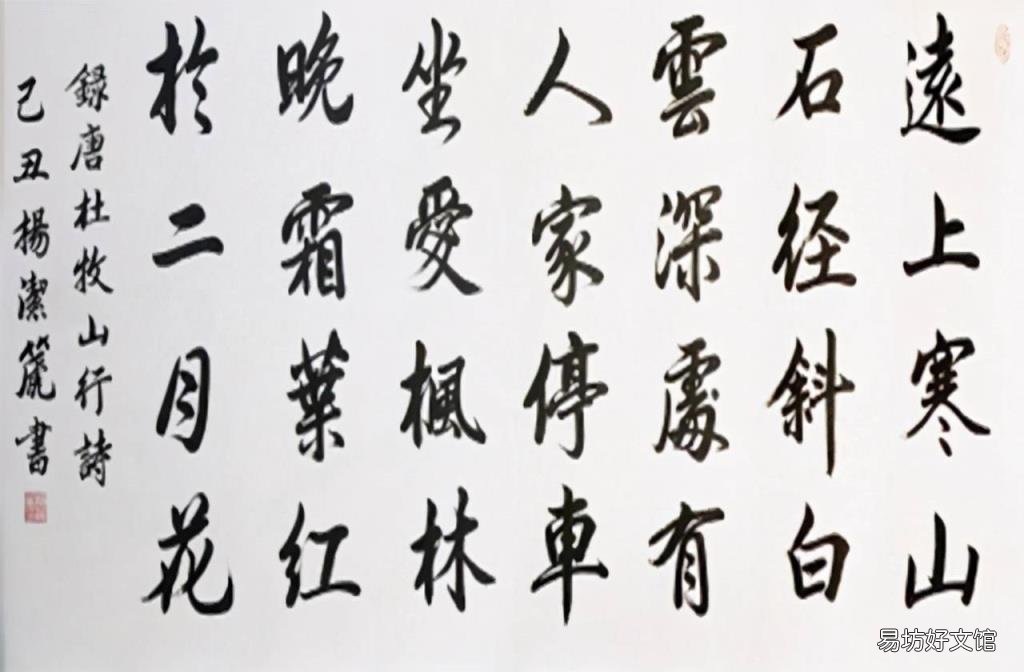 遠上寒山
石径斜白
雲深處有
人家停車
坐愛楓林
晚霜葉红
於二月花
録唐杜牧山行詩
己丑楊潔篪書
易坊好文馆